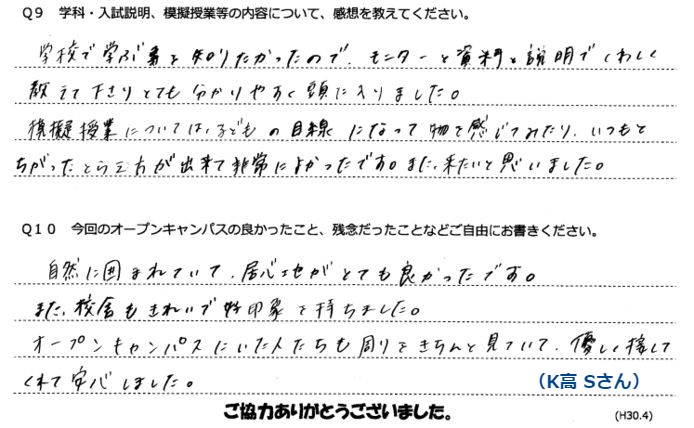 Q9 学科・入試説明、模擬授業等の内容について、感想を教えてください。
学校で学ぶ事を知りたかったので、モニターと資料と説明でくわしく
教えて下さりとても分かりやすく頭に入りました。
模擬授業については、子どもの目線になって物を感じてみたり、いつもと
ちがったとらえ方が出来て非常によかったです。また、来たいと思いました。
Q10 今回のオープンキャンパスの良かったこと、残念だったことなどご自由にお書きください。
自然に囲まれていて、居心地がとても良かったです。
また、校舎もきれいで好印象を持ちました。
オープンキャンパスにいた人たちも周りをきちんと見ていて、優しく接して
くれて安心しました。
（K高 Sさん）
ご協力ありがとうございました。
(H30.4)